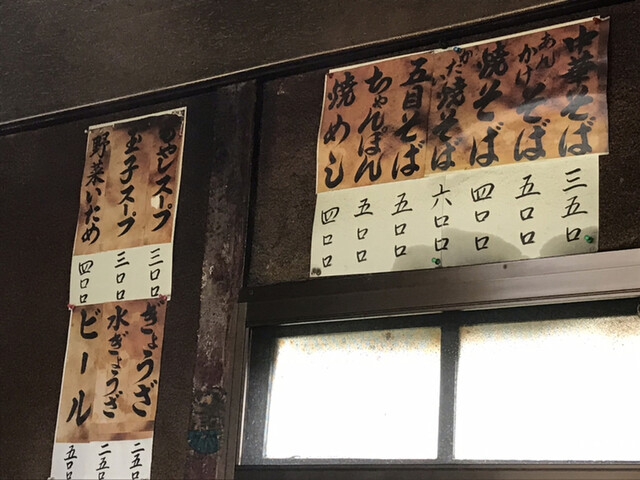 中華そば 三五〇
あんかけそば 五〇〇
焼そば 四〇〇
かた焼そば 六〇〇
五目そば 五〇〇
ちゃんぽん 五〇〇
焼めし 四〇〇
もやしスープ 三〇〇
玉子スープ 三〇〇
野菜いため 四〇〇
ぎょうざ 二五〇
水ぎょうざ 二五〇
ビール 五〇〇